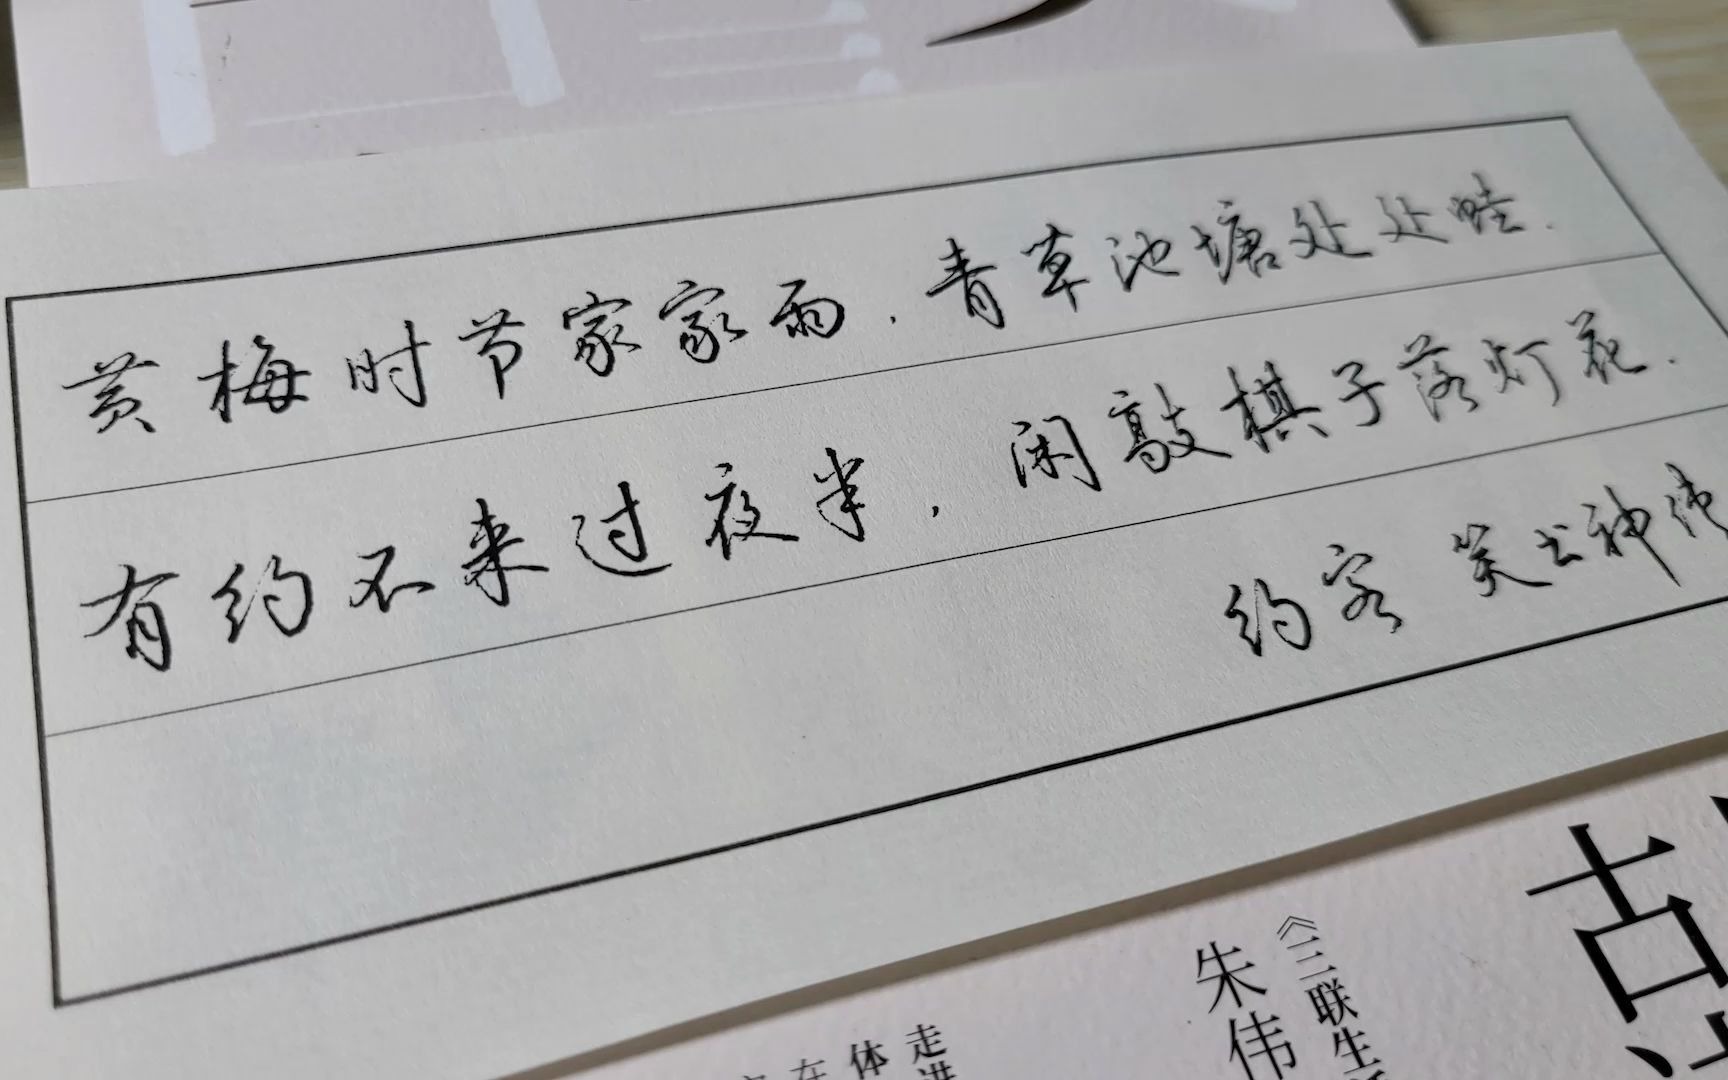 黄梅时节家家雨.青草池塘处处蛙.
有约不来过夜半,闲敲棋子落灯花.
约客 笑书神伟
古
《三联生
朱伟
走进
体
在